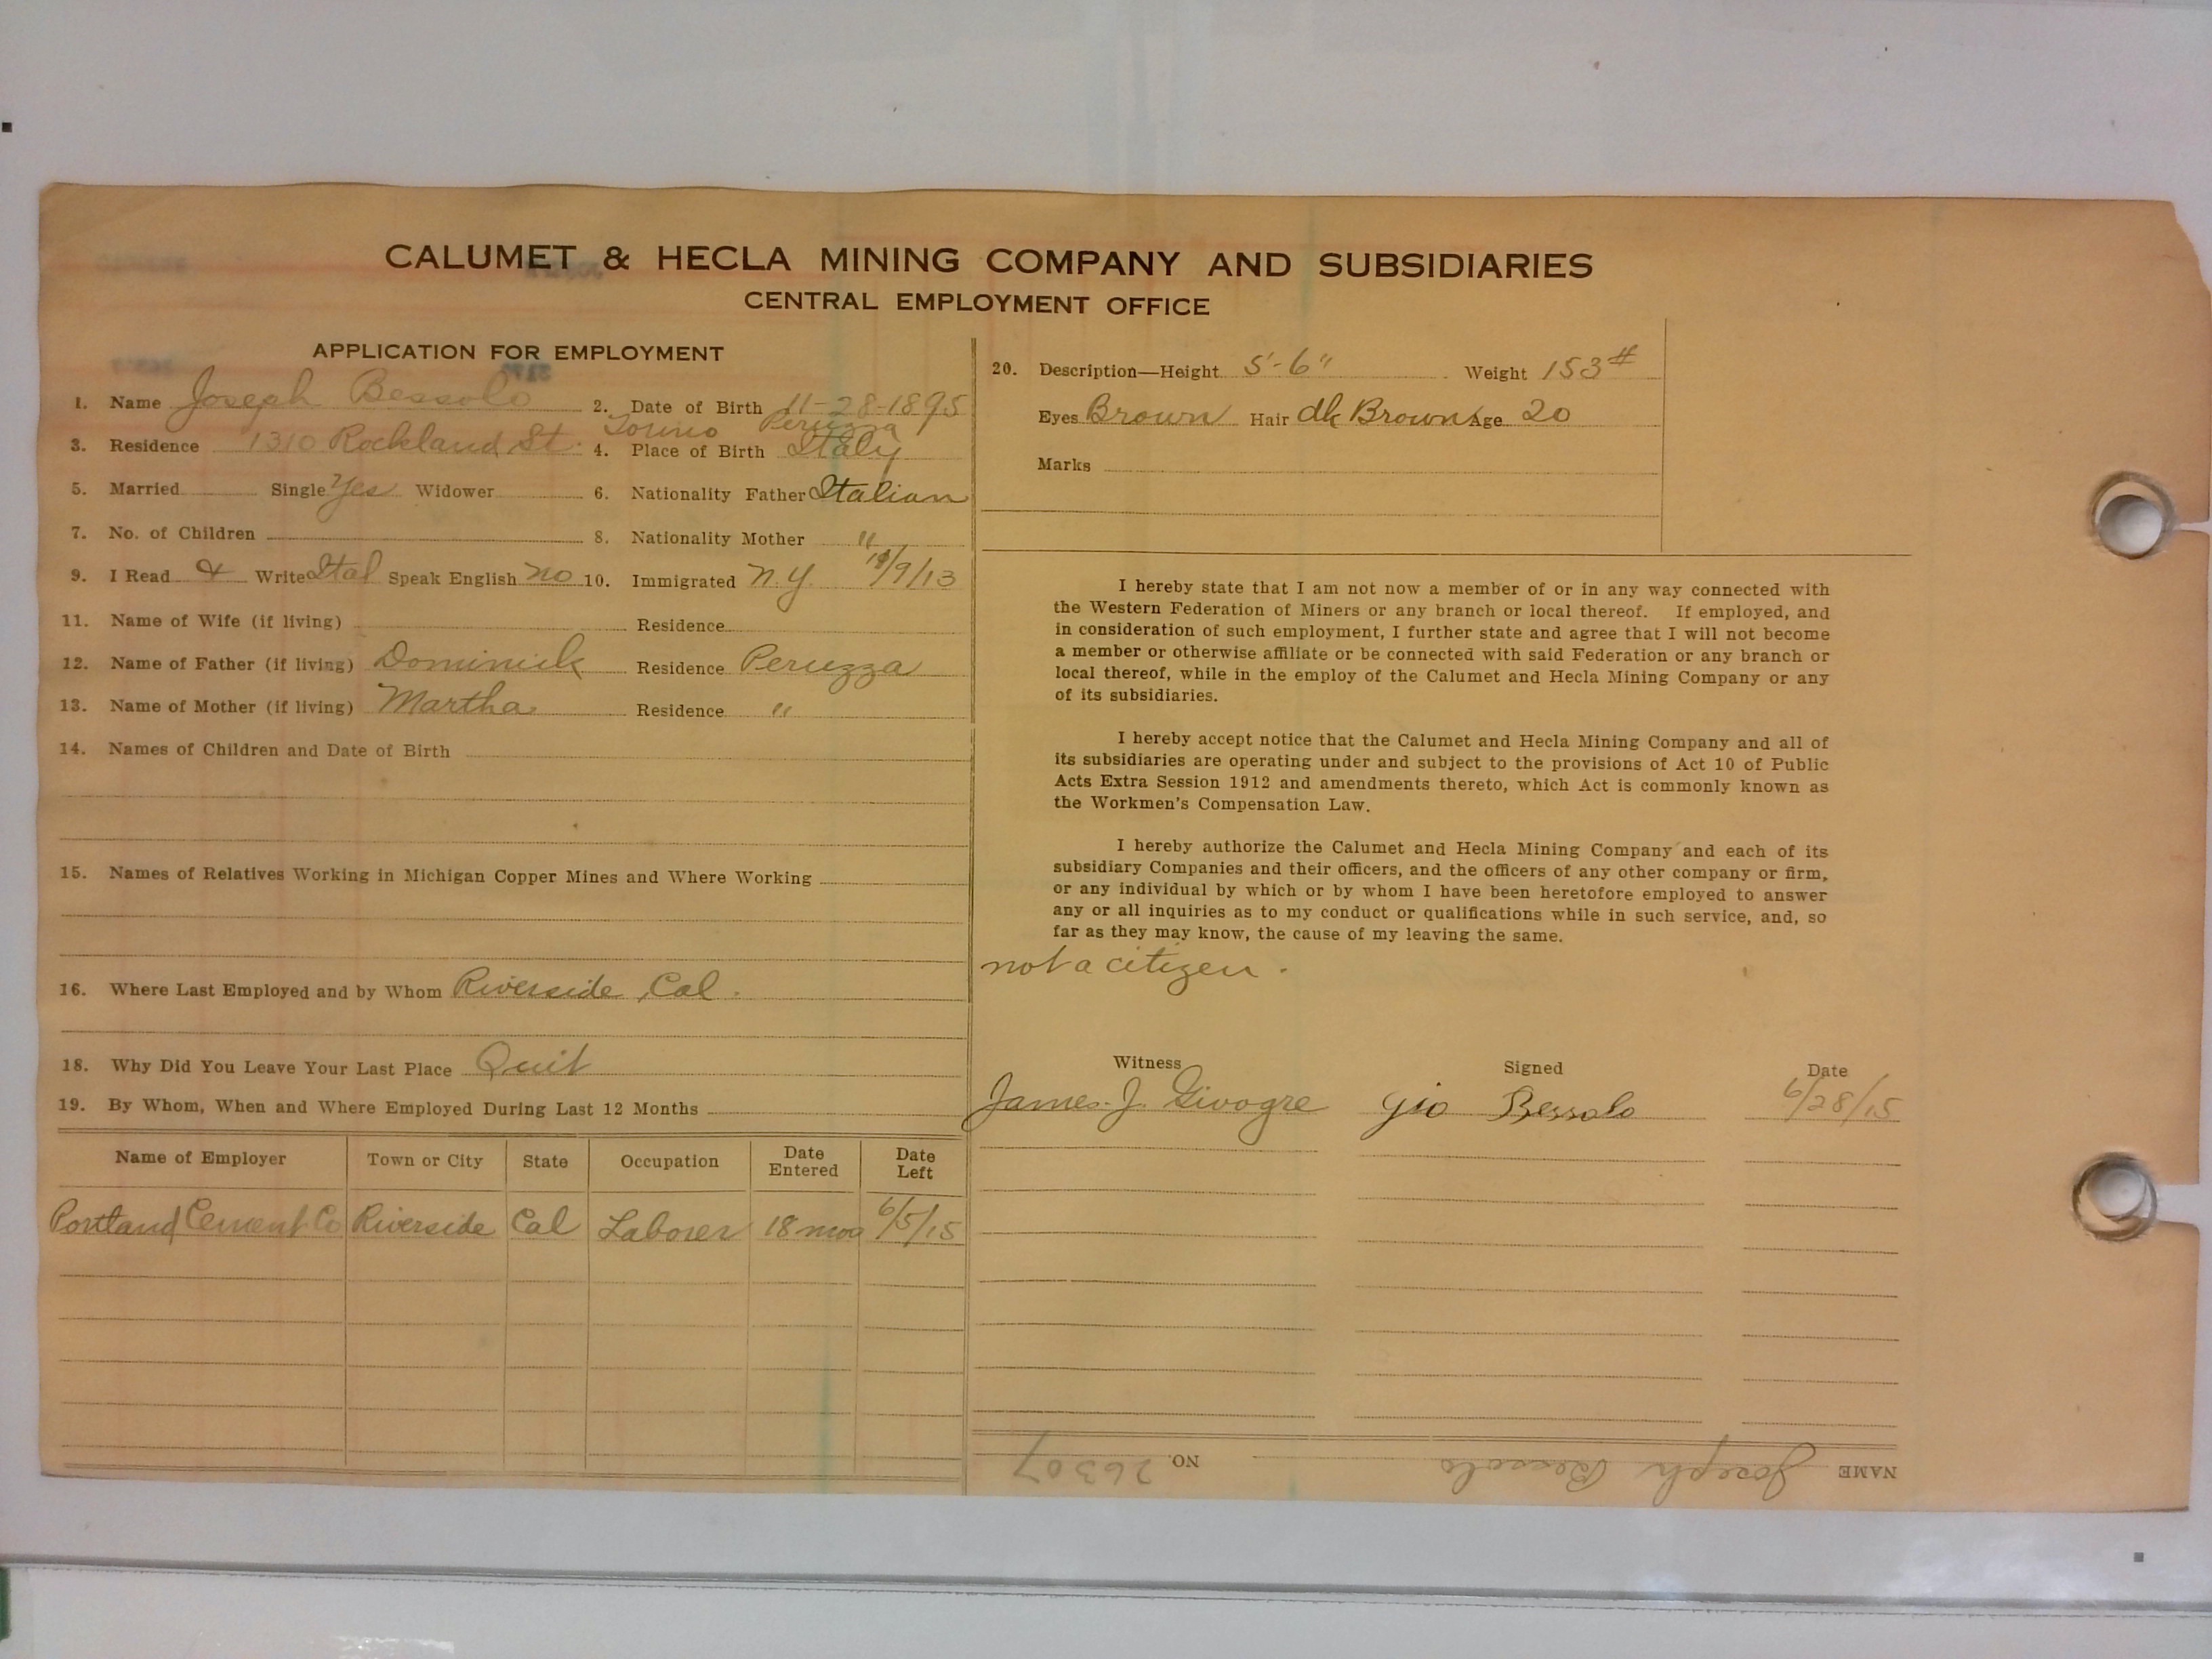 CALUMET & HECLA MINING COMPANY AND SUBSIDIARIES
CENTRAL EMPLOYMENT OFFICE
APPLICATION FOR EMPLOYMENT
1. Name Joseph Bessolo 2. Date of Birth 11-28-1895
Torino Peruzza
3. Residence 1310 Rockland St. 4. Place of Birth Italy
5. Married Single Yes Widower 6. Nationality Father Italian
7. No. of Children 8. Nationality Mother "
9. I Read & Write Ital Speak English no 10. Immigrated N.Y. /9/13
11. Name of Wife (if living) Residence
12. Name of Father (if living) Dominick Residence Peruzza
13. Name of Mother (if living) Martha Residence "
14. Names of Children and Date of Birth
15. Names of Relatives Working in Michigan Copper Mines and Where Working
16. Where Last Employed and by Whom Riverside, Cal.
18. Why Did You Leave Your Last Place Quit
19. By Whom, When and Where Employed During Last 12 Months
Name of Employer Town or City State Occupation Date Entered Date Left
Portland Cement Co Riverside Cal Laborer 18 mos 6/5/15
20. Description—Height 5'-6" Weight 153#
Eyes Brown Hair dk Brown Age 20
Marks
I hereby state that I am not now a member of or in any way connected with
the Western Federation of Miners or any branch or local thereof. If employed, and
in consideration of such employment, I further state and agree that I will not become
a member or otherwise affiliate or be connected with said Federation or any branch or
local thereof, while in the employ of the Calumet and Hecla Mining Company or any
of its subsidiaries.
I hereby accept notice that the Calumet and Hecla Mining Company and all of
its subsidiaries are operating under and subject to the provisions of Act 10 of Public
Acts Extra Session 1912 and amendments thereto, which Act is commonly known as
the Workmen's Compensation Law.
I hereby authorize the Calumet and Hecla Mining Company and each of its
subsidiary Companies and their officers, and the officers of any other company or firm,
or any individual by which or by whom I have been heretofore employed to answer
any or all inquiries as to my conduct or qualifications while in such service, and, so
far as they may know, the cause of my leaving the same.
not a citizen.
Witness Signed Date
James. J. Givogre Gio Bessolo 6/28/15
NAME Joseph Bessolo NO. 26307